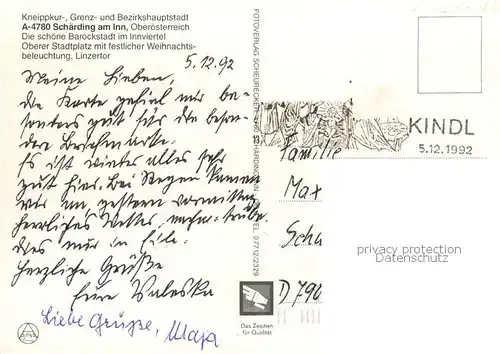 Kneippkur-, Grenz- und Bezirkshauptstadt
A-4780 Schärding am Inn, Oberösterreich
Die schöne Barockstadt im Innviertel
Oberer Stadtplatz mit festlicher Weihnachts-
beleuchtung, Linzertor
5.12.92
Meine Lieben,
die Karte gefiel mir be-
sonders gut für die beson-
dere Briefmarke.
Es ist wieder alles sehr
gut hier. Bei Regen kamen
wir an, gestern vormittag
herrliches Wetter, nachm. trübe.
Dies nur in Eile.
Herzliche Grüße
Eure Valeska
Liebe Grüße, Maja
FOTOVERLAG
TEL. 07712/2329
KINDL
5.12.1992
Familie
Max
Scha
D 790
privacy protection
Datenschutz
Das Zeichen
für Qualität